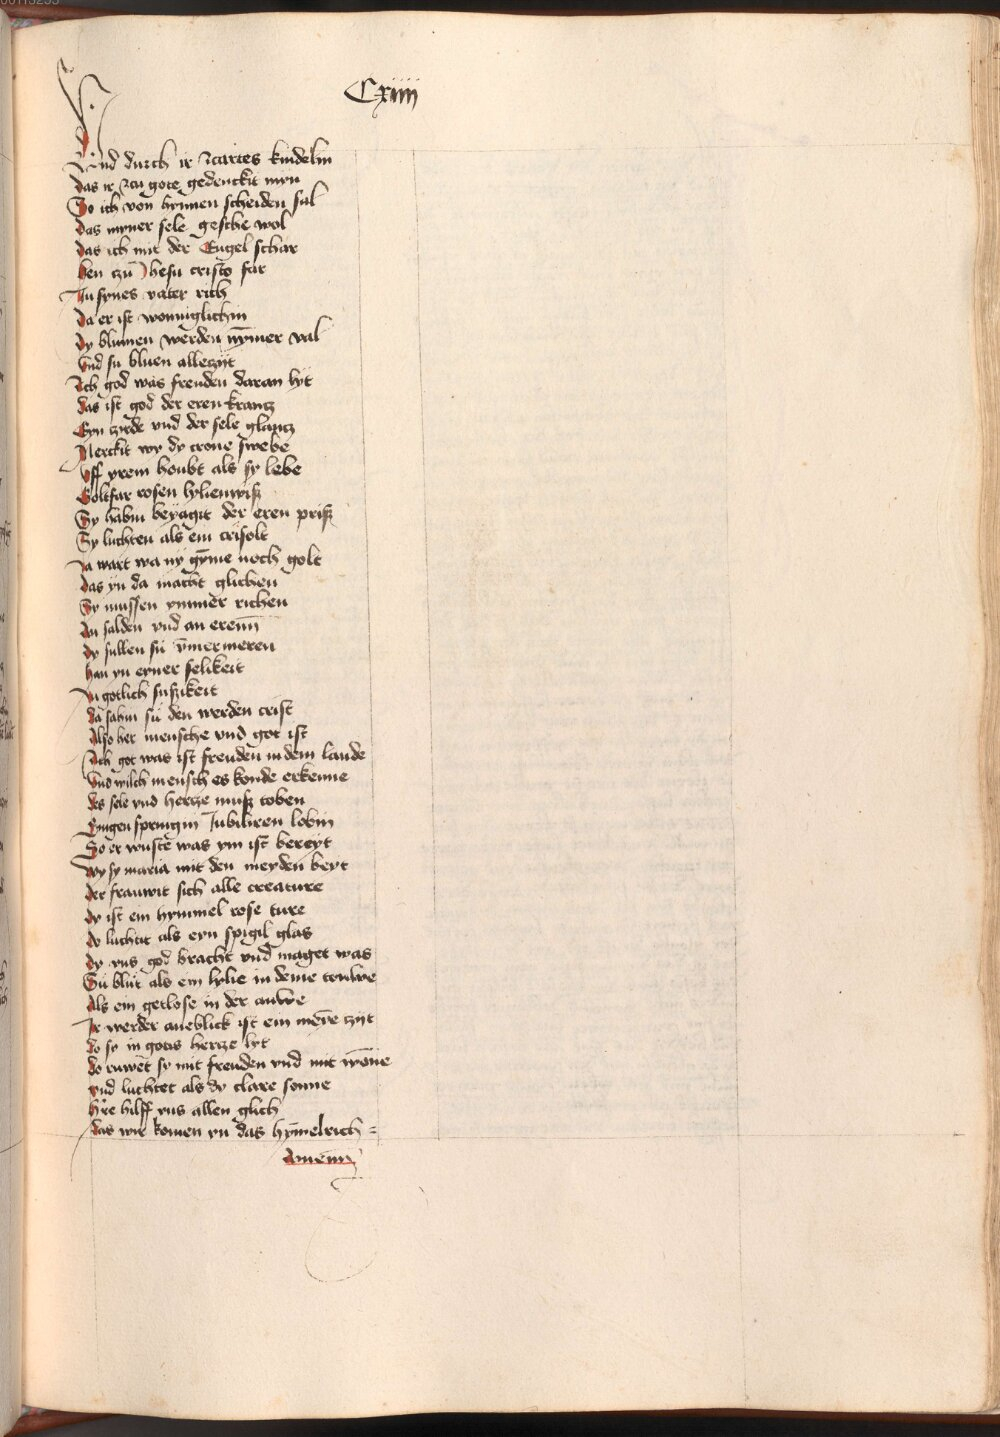 Cxiiii
Vnd durch ir zcartes kindelin
Das ir zcu gote gedenckit myn
So ich von hynnen scheiden sal
Das myner sele gesche wol
Das ich mit der Engel schar
hen czu Jhesu cristo far
In synes vater rich
Da er ist wonniglichin
Dy blumen werden nymer val
Vnd su bluen alleczyt
Ach god was freuden daran lyt
Das ist god der eren krancz
Eyn czirde vnd der sele glancz
Merckit wy dy crone swebe
Vff yrem houbt als sy lebe
Goltfar rosen lylienwisz
Sy habin beyagit der eren prisz
Sy luchten als ein crisolt
Da wart wa ny gyme noch golt
Das yn da macht glichen
Sy mussen ymmer richen
An salden vnd an erenn
Dy sullen su ymermeren
han yn eyner selikeit
In gotlich suszikeit
Da sahin su den werden crist
Also her mensche vnd got ist
Ach got was ist freuden in dem lande
Vnd wilch mensch es konde erkenne
Des sele vnd hercze musz toben
Syngen springin Jubiliren lobin
So er wuste was ym ist bereyt
Wy sy maria mit den meyden beyt
Der frauwit sich alle creature
Dy ist ein hymmel rose ture
Dy luchtit als eyn spigil glas
Dy vns god bracht vnd maget was
Su blut als ein lylie in deme touwe
Als ein getlose in der auwe
Ir werder aneblick ist ein mere czyt
Do sy in gotis hercze lyt
Do ruwet sy mit freuden vnd mit wone
Vnd luchtet als dy clare sonne
Hre hilff vns allen glich
Das wir komen yn das hymelrich =
Amenn